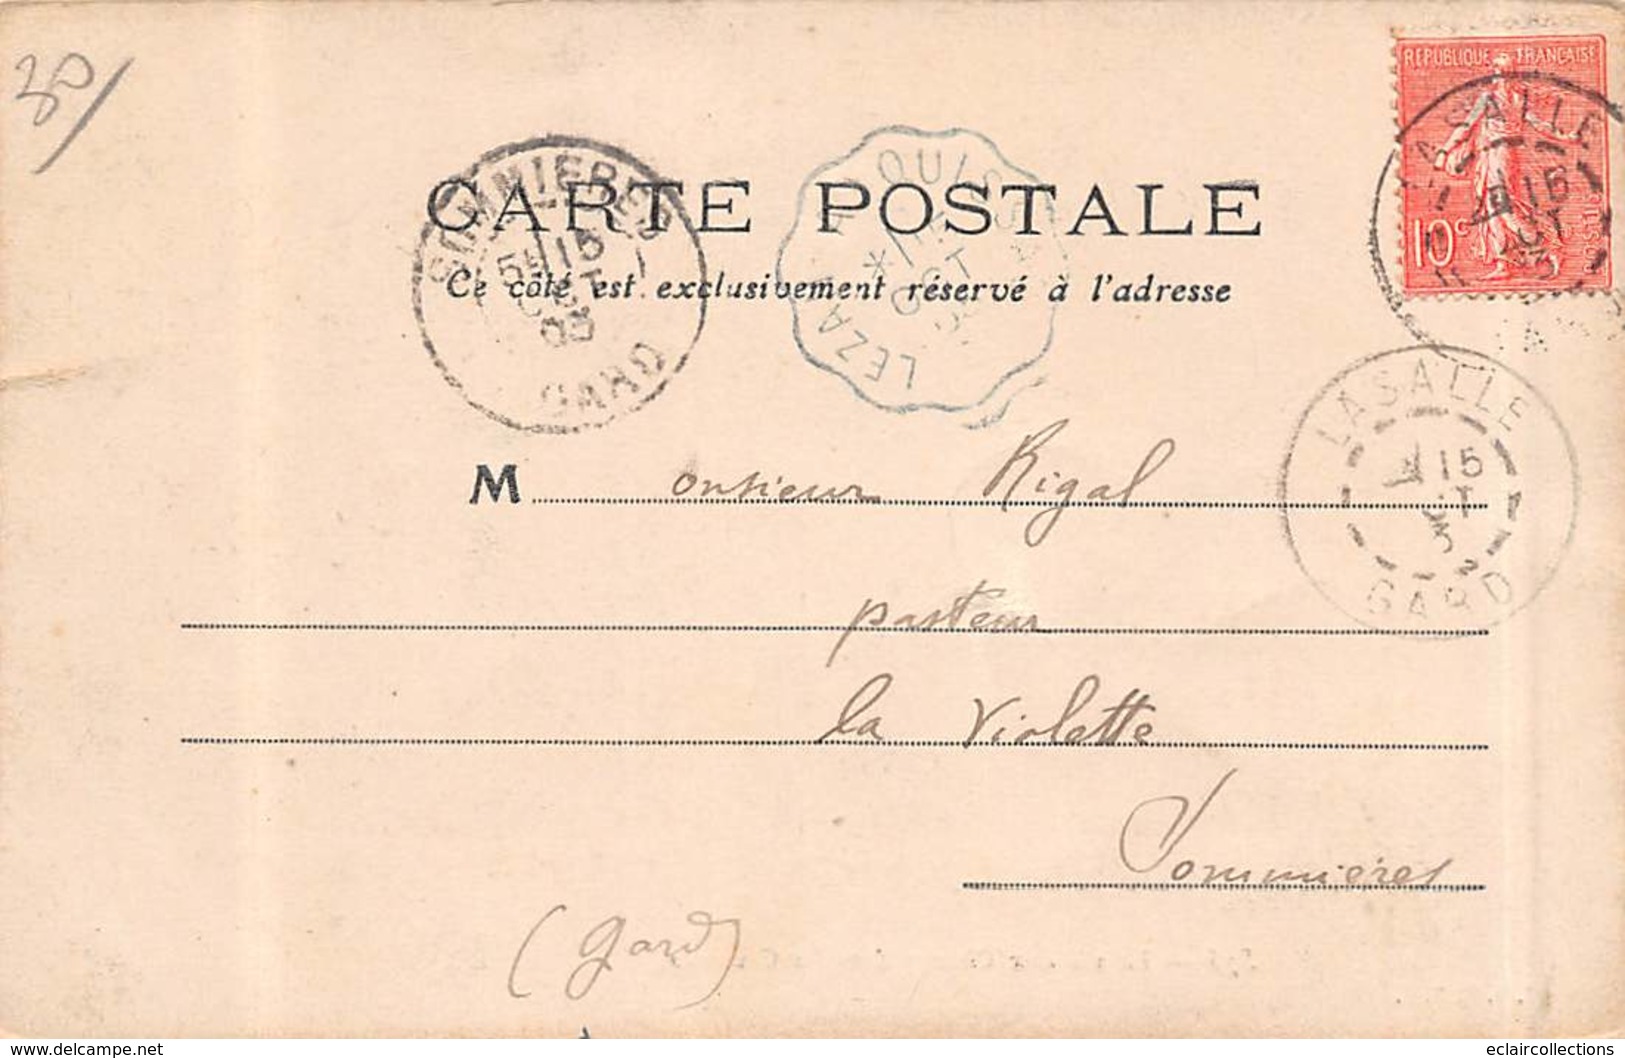 30/
REPUBLIQUE FRANÇAISE
10c
POSTES
LASALLE
15
OCT
03
SOMMIERES
15
OCT
03
GARD
LEZAN QUISS
*
OCT
CARTE POSTALE
Ce côté est exclusivement réservé à l'adresse
LASALLE
15
GARD
Monsieur Rigal
pasteur
la Violette
Sommières
(Gard)
delcampe.net
eclaircollections